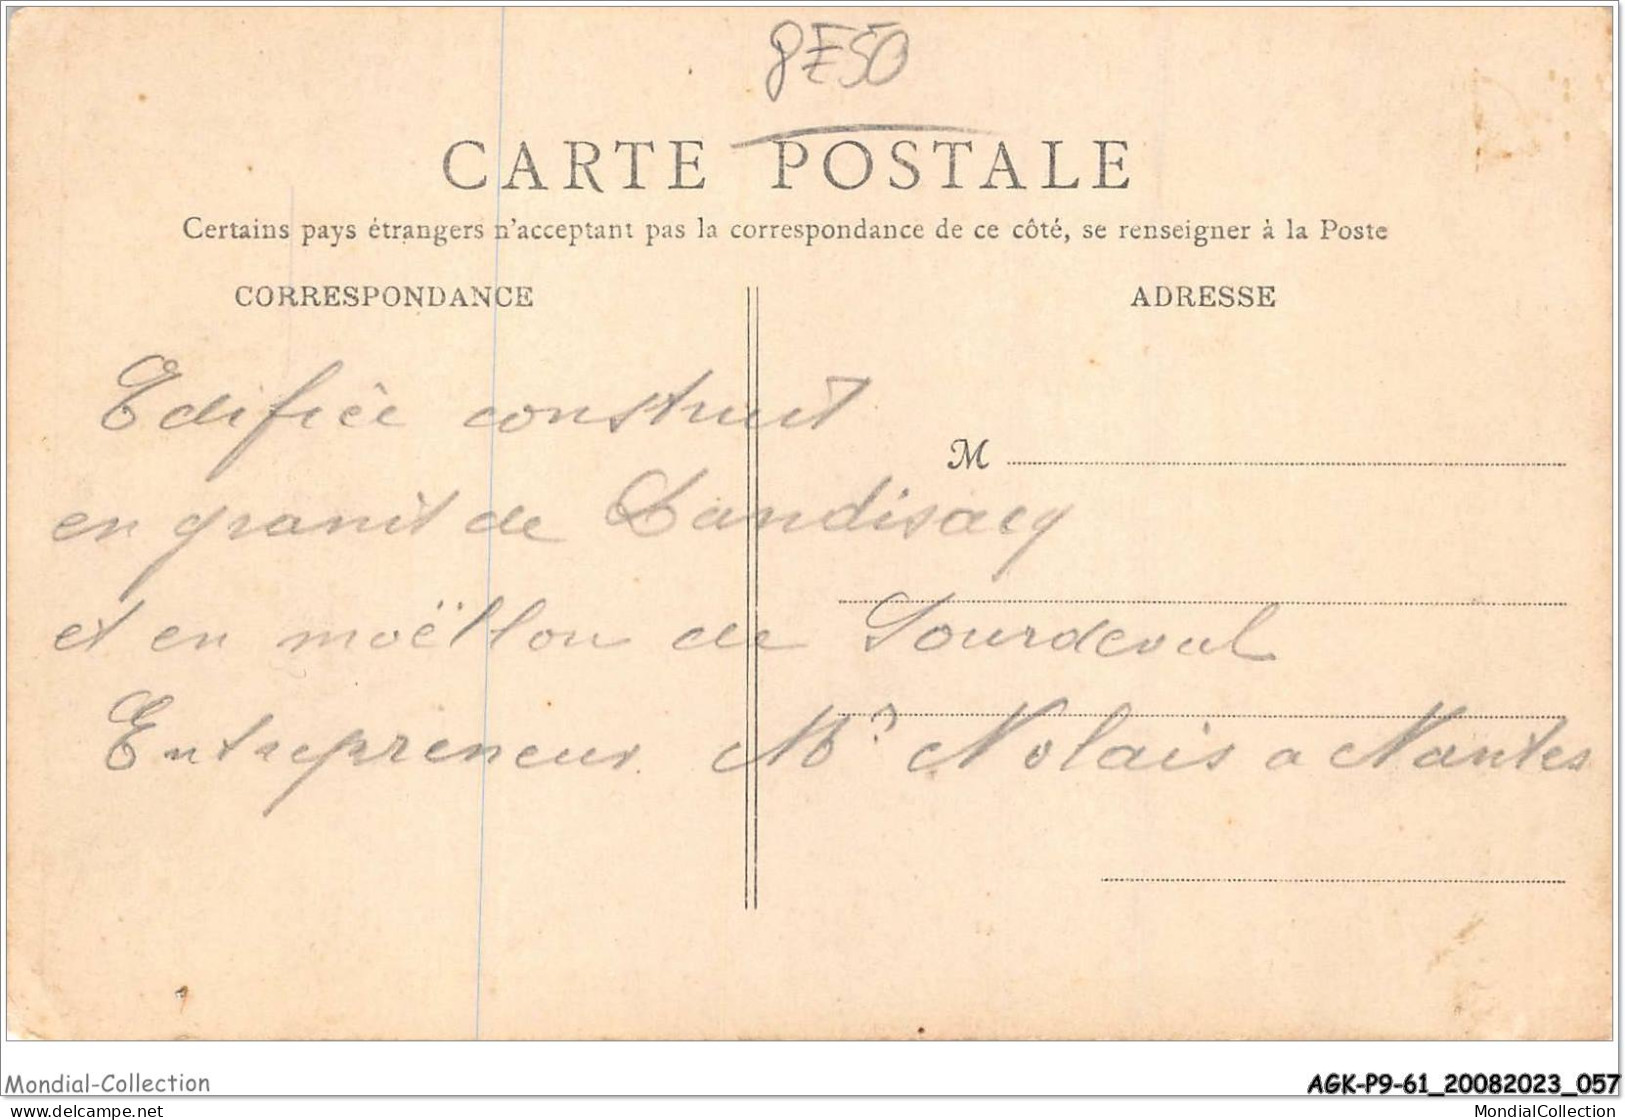 8E50
CARTE POSTALE
Certains pays étrangers n'acceptant pas la correspondance de ce côté, se renseigner à la Poste
CORRESPONDANCE
ADRESSE
Edifiée construit
M
en granit de Landisacq
et en moëllon de Sourdeval
Entrepreneur Mr Nolais a Nantes
Mondial-Collection
AGK-P9-61_20082023_057
www.delcampe.net
MondialCollection